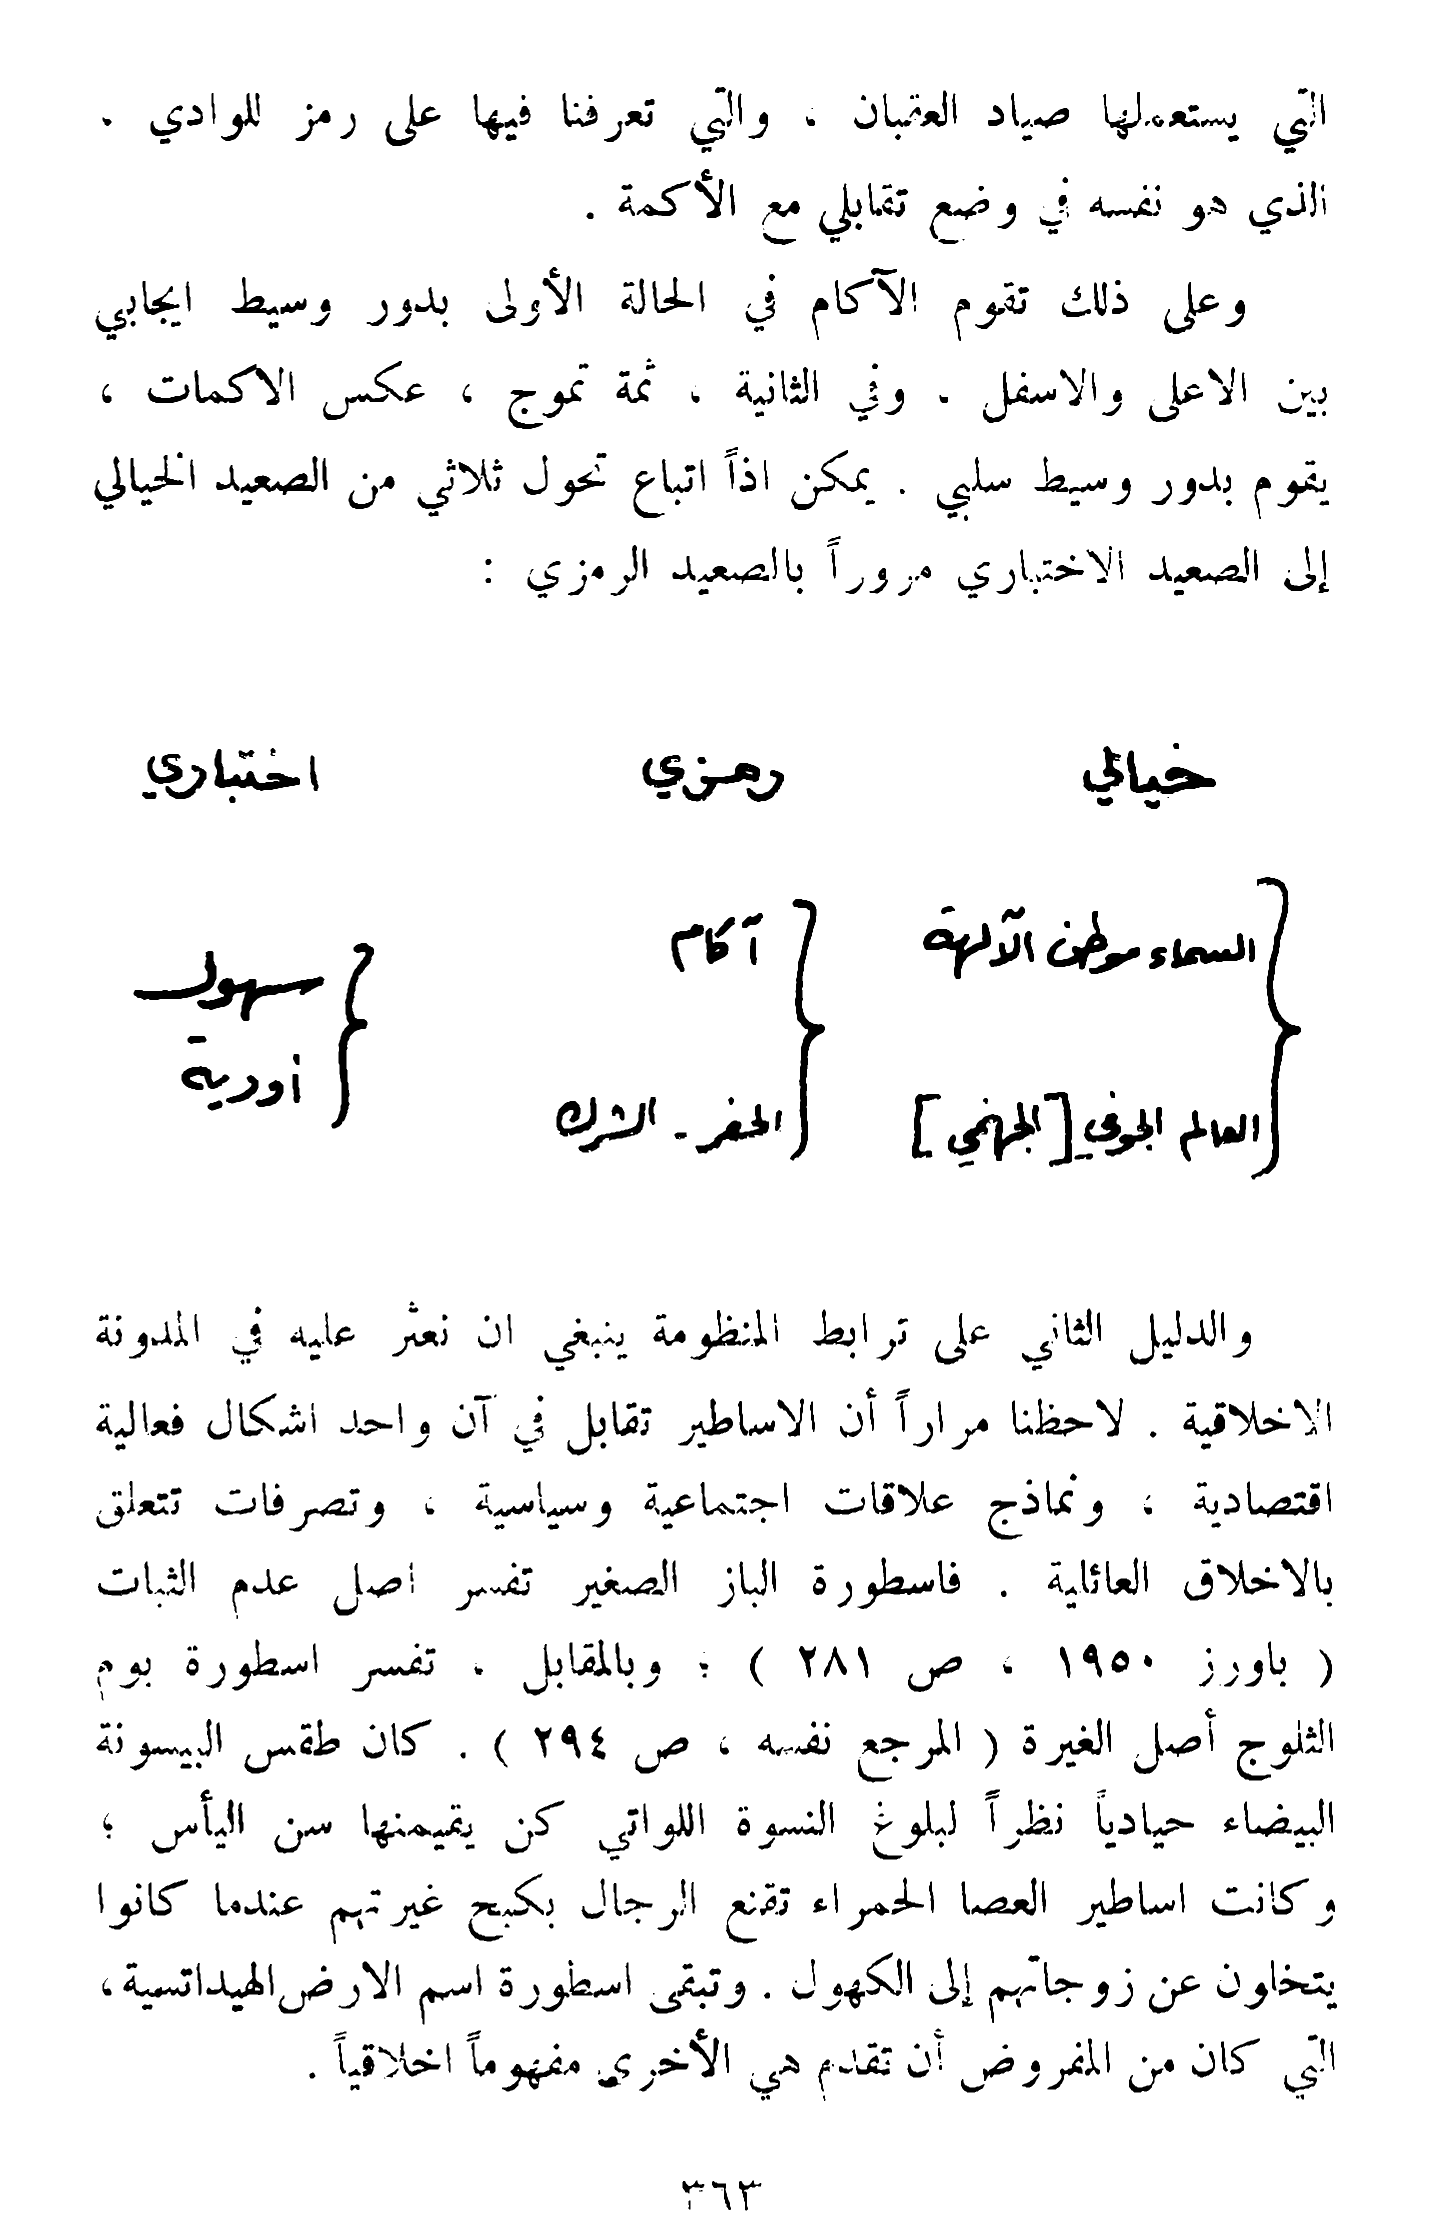 التي يستعملها صياد العقبان ، والتي تعرفنا فيها على رمز للوادي .
الذي هو نفسه في وضع تقابلي مع الأكمة .
وعلى ذلك تقوم الآكام في الحالة الأولى بدور وسيط ايجابي
بين الاعلى والاسفل . وفي الثانية ، ثمة تموج ، عكس الاكمات ،
يقوم بدور وسيط سلبي . يمكن اذاً اتباع تحول ثلاثي من الصعيد الخيالي
إلى الصعيد الاختباري مروراً بالصعيد الرمزي :
خيالي رمزي اختباري
السماء موطن الآلهة آكام سهول
أودية
العالم الجوفي [الجهنمي] الحفر - الشرك
والدليل الثاني على ترابط المنظومة ينبغي ان نعثر عليه في المدونة
الاخلاقية . لاحظنا مراراً أن الاساطير تقابل في آن واحد اشكال فعالية
اقتصادية ، ونماذج علاقات اجتماعية وسياسية ، وتصرفات تتعلق
بالاخلاق العائلية . فاسطورة الباز الصغير تفسر اصل عدم الثبات
( باورز ١٩٥٠ ، ص ٢٨١ ) ؛ وبالمقابل ، تفسر اسطورة بوم
الثلوج أصل الغيرة ( المرجع نفسه ، ص ٢٩٤ ) . كان طقس البيسونة
البيضاء حيادياً نظراً لبلوغ النسوة اللواتي كن يقيمنها سن اليأس ؛
وكانت اساطير العصا الحمراء تقنع الرجال بكبح غيرتهم عندما كانوا
يتخلون عن زوجاتهم إلى الكهول . وتبقى اسطورة اسم الارض الهيداتسية ،
التي كان من المفروض أن تقدم هي الأخرى مفهوماً اخلاقياً .
٣٦٣